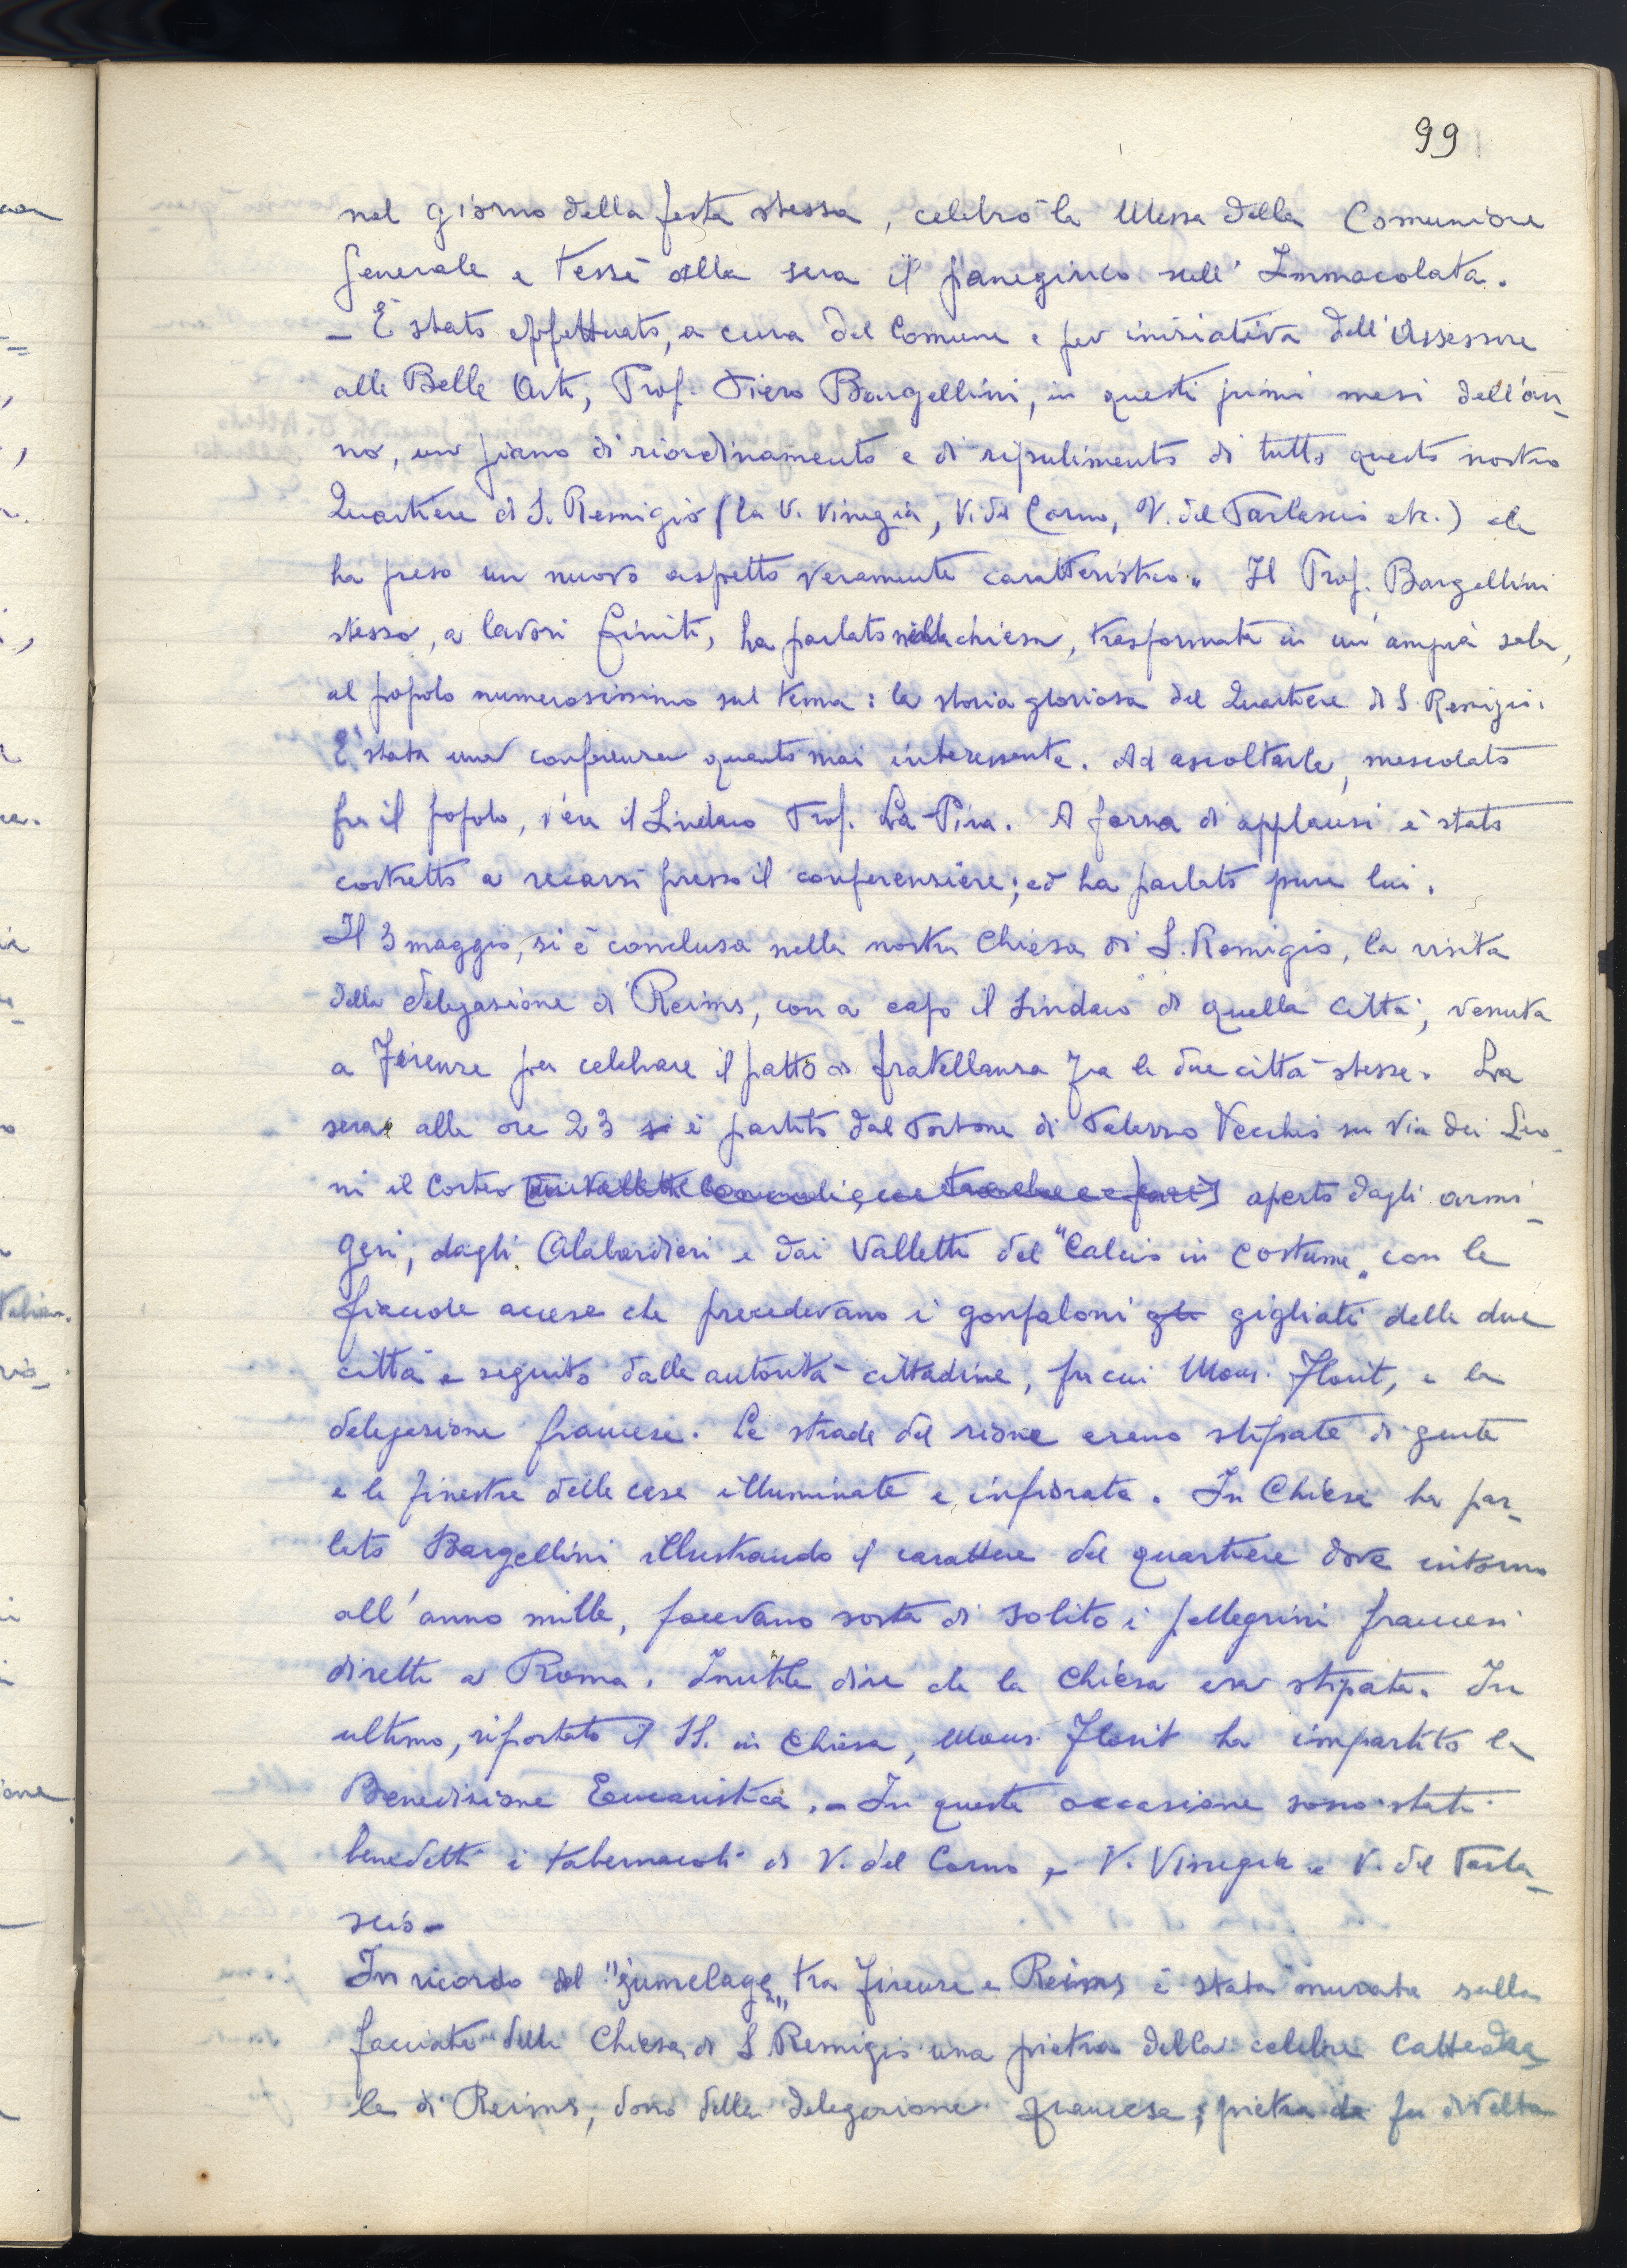 99
nel giorno della festa stessa, celebrò la Messa della Comunione
Generale e tessè alla sera il panegirico sull'Immacolata.
- È stato effettuato, a cura del Comune e per iniziativa dell'Assessore
alle Belle Arti, Prof. Piero Bargellini, in questi primi mesi dell'an-
no, un piano di riordinamento e di ripulimento di tutto questo nostro
Quartiere di S. Remigio (la V. Vinegia, V. del Corno, V. del Parlascio etc.) che
ha preso un nuovo aspetto veramente caratteristico. Il Prof. Bargellini
stesso, a lavori finiti, ha parlato nella chiesa, trasformata in un'ampia sala,
al popolo numerosissimo sul tema: la storia gloriosa del Quartiere di S. Remigio.
È stata una conferenza quanto mai interessante. Ad ascoltarla, mescolato
fra il popolo, v'era il Sindaco Prof. La Pira. A forza di applausi è stato
costretto a recarsi presso il conferenziere; ed ha parlato pure lui.
Il 3 maggio, si è conclusa nella nostra Chiesa di S. Remigio, la visita
della delegazione di Reims, con a capo il Sindaco di quella città, venuta
a Firenze per celebrare il patto di fratellanza fra le due città stesse. La
sera alle ore 23 si è partito dal Portone di Palazzo Vecchio su Via dei Leo-
ni il Corteo aperto dagli armi-
geri, dagli Alabardieri e dai Valletti del "Calcio in Costume" con le
fiaccole accese che precedevano i gonfaloni gli gigliati delle due
città e seguito dalle autorità cittadine, fra cui Mons. Florit, e la
delegazione francese. Le strade del rione erano stipate di gente
e le finestre delle case illuminate e infiorate. In Chiesa ha par-
lato Bargellini illustrando il carattere del quartiere dove intorno
all'anno mille, facevano sosta di solito i pellegrini francesi
diretti a Roma. Inutile dire che la Chiesa era stipata. In
ultimo, riportato il SS. in Chiesa, Mons. Florit ha impartito la
Benedizione Eucaristica. - In questa occasione sono stati
benedetti i tabernacoli di V. del Corno, V. Vinegia e V. del Parla-
scio -
In ricordo del "jumelage" tra Firenze e Reims è stata murata sulla
facciata della Chiesa di S. Remigio una pietra della celebre Cattedra-
le di Reims, dono della delegazione francese; pietra che fu divelta